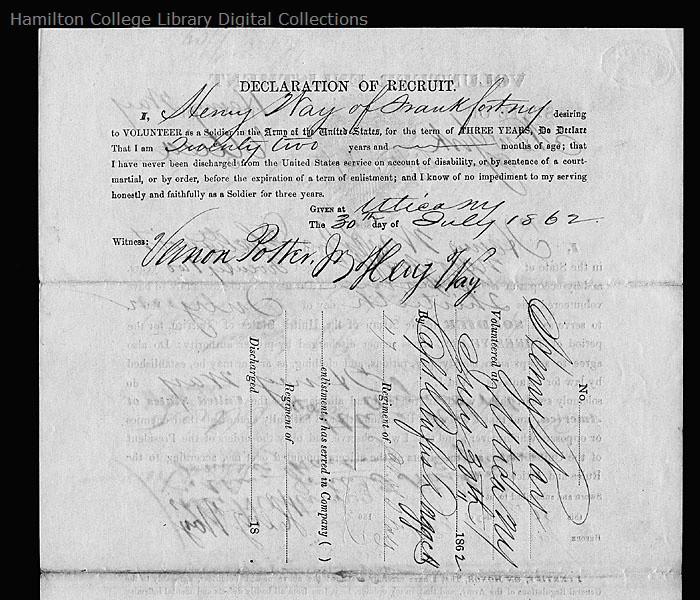 Hamilton College Library Digital Collections
DECLARATION OF RECRUIT.
I, Henry Way of Frankfort ny desiring
to VOLUNTEER as a Soldier in the Army of the United States, for the term of THREE YEARS, Do Declare
That I am Twenty two years and months of age; that
I have never been discharged from the United States service on account of disability, or by sentence of a court-
martial, or by order, before the expiration of a term of enlistment; and I know of no impediment to my serving
honestly and faithfully as a Soldier for three years.
GIVEN at Utica ny
The 30th day of July 1862.
Witness:
Vernon Potter, Jr Henry Way
No.
Henry Way
Volunteered at Utica ny
July 30th 1862
By Capt Rufus Daggett
Regiment of
enlistments; has served in Company ( )
Regiment of
Discharged 18